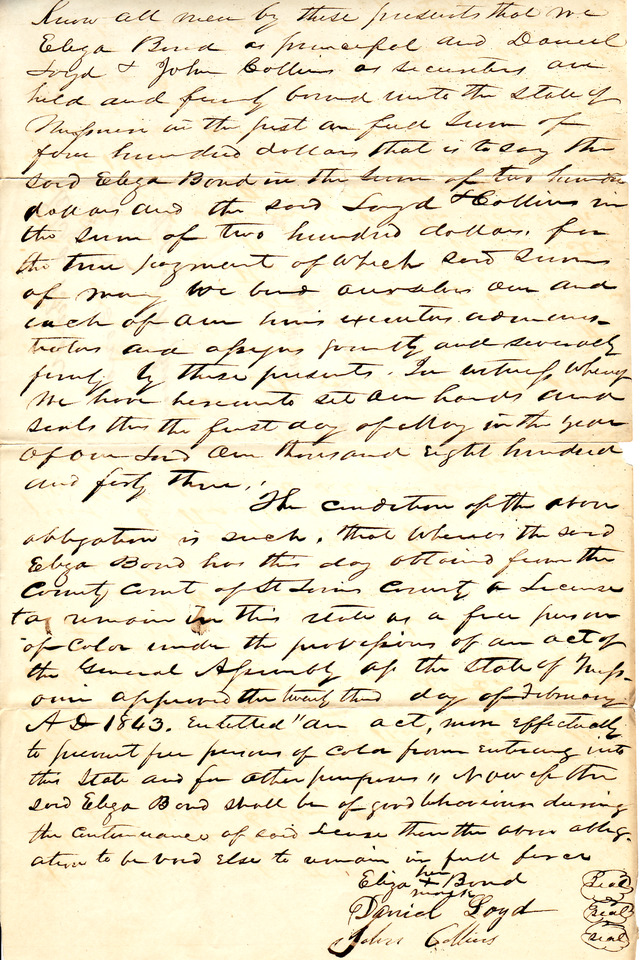 Know all men by these presents that we
Eliza Bond as principal and Daniel
Loyd & John Collins as securities are
held and firmly bound unto the State of
Missouri in the just an full sum of
four hundred dollars that is to say the
said Eliza Bond in the sum of two hundred
dollars and the said Loyd & Collins in
the sum of two hundred dollars, for
the true payment of which said sums
of money we bind ourselves our and
each of our heirs executors adminis-
trators and assigns jointly and severally
firmly by these presents. In witness whereof
we have hereunto set our hands and
seals this the first day of May in the year
of our Lord one thousand eight hundred
and forty three.
The condition of the above
obligation is such, that whereas the said
Eliza Bond has this day obtained from the
County Court of St Louis County a License
to remain in this state as a free person
of color under the provisions of an act of
the General Assembly of the State of Miss-
ouri approved the twenty third day of February
A D 1843. Entitled "an act, more effectually
to prevent free persons of color from entering into
this State and for other purposes" Now if the
said Eliza Bond shall be of good behaviour during
the continuance of said License then the above oblig-
ation to be void else to remain in full force
Eliza her + mark Bond seal
Daniel Loyd seal
John Collins seal